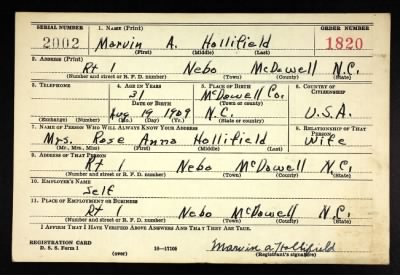 SERIAL NUMBER 1. NAME (Print) ORDER NUMBER
2002 Marvin A. Hollifield 1820
(First) (Middle) (Last)
2. ADDRESS (Print)
Rt 1 Nebo McDowell N.C.
(Number and street or R. F. D. number) (Town) (County) (State)
3. TELEPHONE 4. AGE IN YEARS 5. PLACE OF BIRTH 6. COUNTRY OF CITIZENSHIP
31 McDowell Co.
DATE OF BIRTH (Town or county)
Aug 19 1909 N.C. U.S.A.
(Exchange) (Number) (Mo.) (Day) (Yr.) (State or country)
7. NAME OF PERSON WHO WILL ALWAYS KNOW YOUR ADDRESS 8. RELATIONSHIP OF THAT PERSON
Mrs. Rose Anna Hollifield Wife
(Mr., Mrs., Miss) (First) (Middle) (Last)
9. ADDRESS OF THAT PERSON
Rt 1 Nebo McDowell N.C.
(Number and street or R. F. D. number) (Town) (County) (State)
10. EMPLOYER'S NAME
Self
11. PLACE OF EMPLOYMENT OR BUSINESS
Rt 1 Nebo McDowell N.C.
(Number and street or R. F. D. number) (Town) (County) (State)
I AFFIRM THAT I HAVE VERIFIED ABOVE ANSWERS AND THAT THEY ARE TRUE.
REGISTRATION CARD
D. S. S. Form 1 (over) 16—17105 Marvin A. Hollifield
(Registrant's signature)